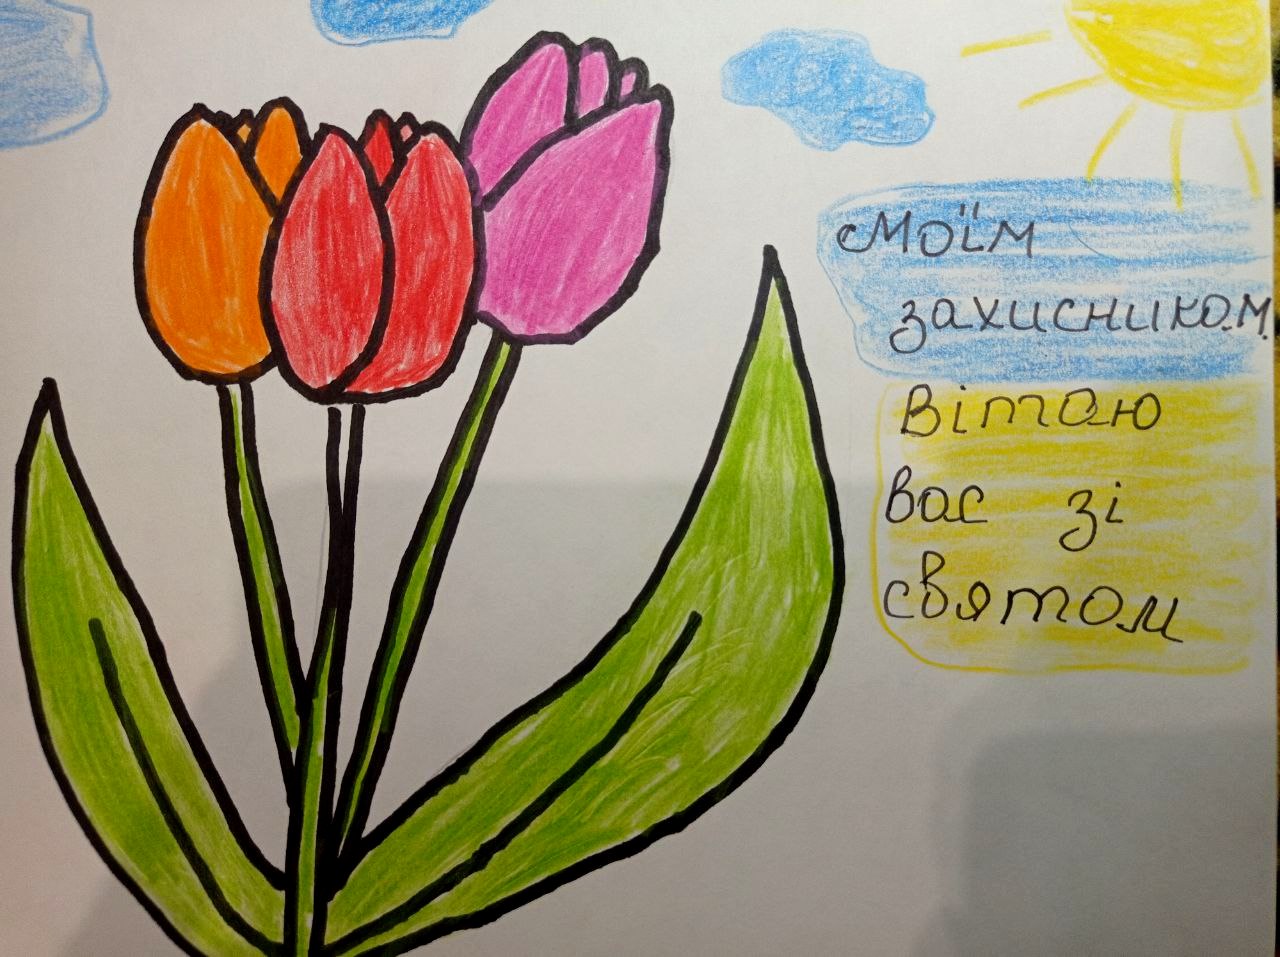 Моїм
захисникам.
Вітаю
вас зі
святом